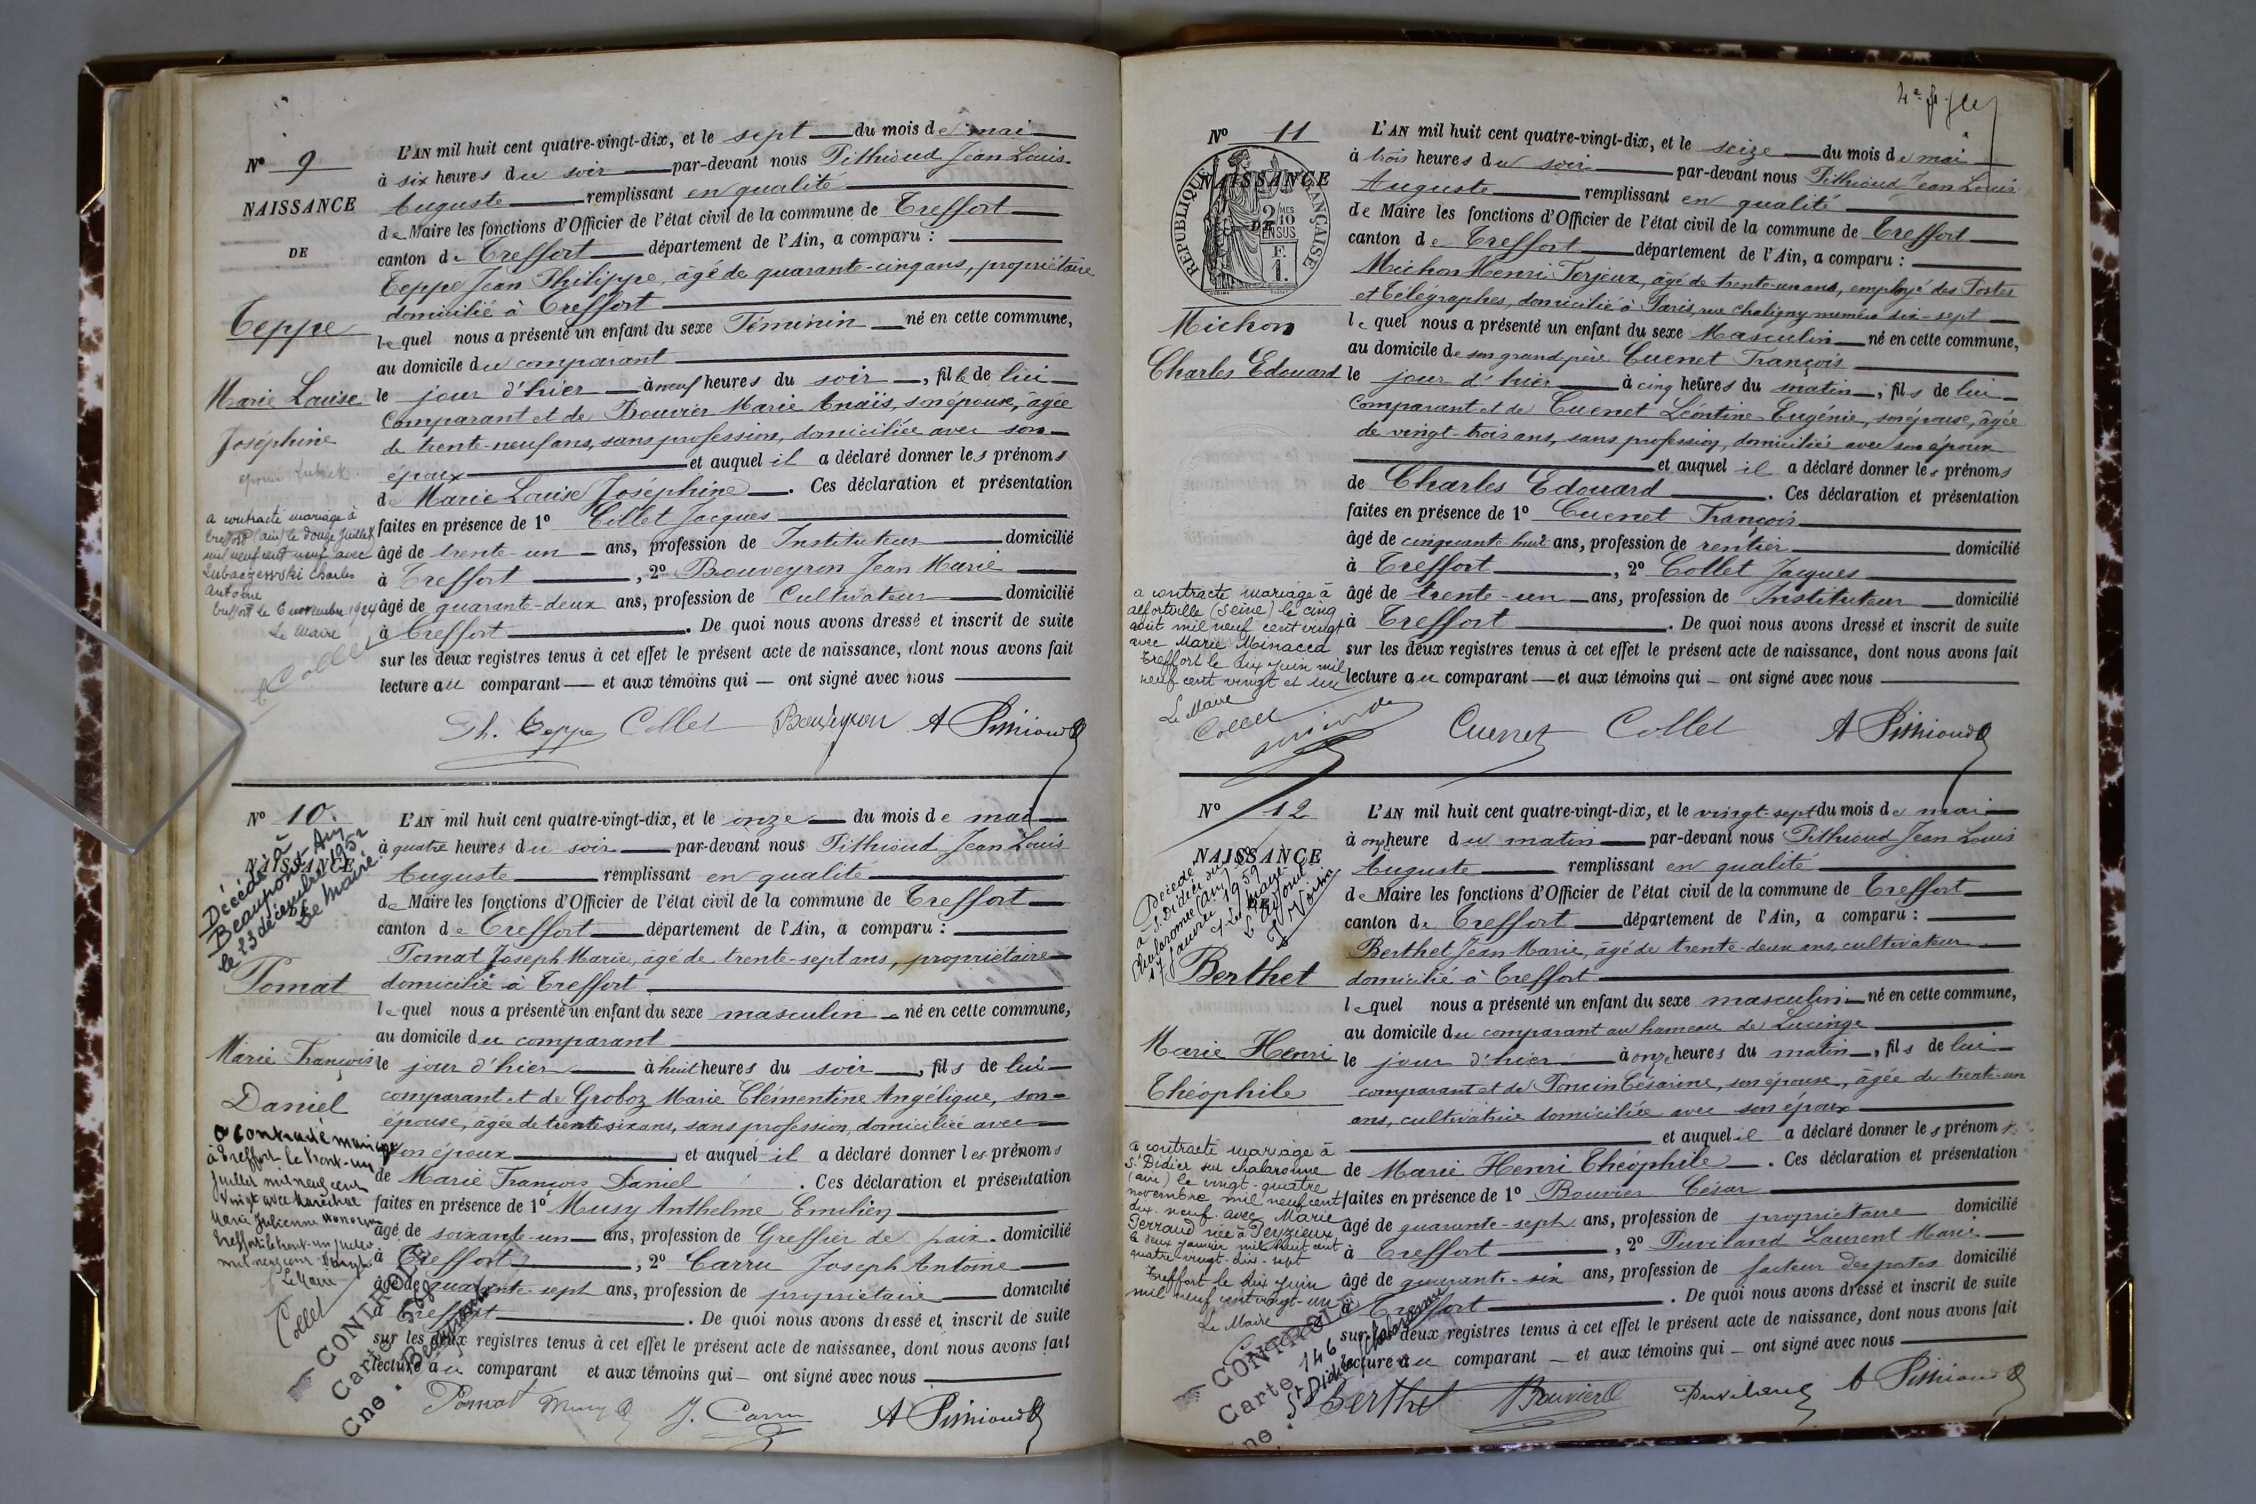 N° 9
NAISSANCE
DE
Teppe
Marie Louise
Joséphine
a contracté mariage à
Treffort (ain) le douze Juillet
mil neuf cent neuf avec
Lubaczewski Charles
Antoine
Treffort le 6 novembre 1924
Le Maire
Collet
L'AN mil huit cent quatre-vingt-dix, et le sept du mois de mai
à six heures du soir par-devant nous Pithioud Jean Louis
Auguste remplissant en qualité
de Maire les fonctions d'Officier de l'état civil de la commune de Treffort
canton de Treffort département de l'Ain, a comparu :
Teppe Jean Philippe, âgé de quarante-cinq ans, propriétaire
domicilié à Treffort
lequel nous a présenté un enfant du sexe Féminin né en cette commune,
au domicile du comparant
le jour d'hier à neuf heures du soir, fille de lui
comparant et de Bouvier Marie Anaïs, son épouse, âgée
de trente-neuf ans, sans profession, domiciliée avec son
époux et auquel il a déclaré donner les prénoms
de Marie Louise Joséphine. Ces déclaration et présentation
faites en présence de 1° Collet Jacques
âgé de trente-un ans, profession de Instituteur domicilié
à Treffort, 2° Bouveyron Jean Marie
âgé de quarante-deux ans, profession de Cultivateur domicilié
à Treffort. De quoi nous avons dressé et inscrit de suite
sur les deux registres tenus à cet effet le présent acte de naissance, dont nous avons fait
lecture au comparant et aux témoins qui ont signé avec nous
Ph. Teppe Collet Bouveyron A Pithioud
N° 10
NAISSANCE
DE
Décédé à
Beaupont Ain
le 23 décembre 1952
Le Maire
Pomat
Marie François
Daniel
a contracté mariage
à Treffort le trent-un
Juillet mil neuf cent
vingt avec Maréchal
Marie Julienne Honorine
Treffort le trent-un juillet
mil neuf cent vingt
Le Maire
Collet
L'AN mil huit cent quatre-vingt-dix, et le onze du mois de mai
à quatre heures du soir par-devant nous Pithioud Jean Louis
Auguste remplissant en qualité
de Maire les fonctions d'Officier de l'état civil de la commune de Treffort
canton de Treffort département de l'Ain, a comparu :
Pomat Joseph Marie, âgé de trente-sept ans, propriétaire
domicilié à Treffort
lequel nous a présenté un enfant du sexe masculin né en cette commune,
au domicile du comparant
le jour d'hier à huit heures du soir, fils de lui
comparant et de Groboz Marie Clémentine Angélique, son
épouse, âgée de trente six ans, sans profession, domiciliée avec
son époux et auquel il a déclaré donner les prénoms
de Marie François Daniel. Ces déclaration et présentation
faites en présence de 1° Musy Anthelme Emilien
âgé de soixante-un ans, profession de Greffier de paix domicilié
à Treffort, 2° Carru Joseph Antoine
âgé de quarante-sept ans, profession de propriétaire domicilié
à Treffort. De quoi nous avons dressé et inscrit de suite
sur les deux registres tenus à cet effet le présent acte de naissance, dont nous avons fait
lecture au comparant et aux témoins qui ont signé avec nous
CONTROLE
Carte
Cne. Beaupont
Pomat Musy J. Carru A Pithioud
N° 11
NAISSANCE
DE
RÉPUBLIQUE FRANÇAISE
2/10 MES
EN SUS
F.
1.
Michon
Charles Edouard
a contracté mariage à
alfortville (Seine) le cinq
août mil neuf cent vingt
avec Marie Minacca
Treffort le dix juin mil
neuf cent vingt et un
Le Maire
Collet
L'AN mil huit cent quatre-vingt-dix, et le seize du mois de mai
à trois heures du soir par-devant nous Pithioud Jean Louis
Auguste remplissant en qualité
de Maire les fonctions d'Officier de l'état civil de la commune de Treffort
canton de Treffort département de l'Ain, a comparu :
Michon Henri Forjeux, âgé de trente-un ans, employé des Postes
et Télégraphes, domicilié à Paris, rue Chaligny numéro dix-sept
lequel nous a présenté un enfant du sexe Masculin né en cette commune,
au domicile de son grand père Cuenet François
le jour d'hier à cinq heures du matin, fils de lui
comparant et de Cuenet Léontine Eugénie, son épouse, âgée
de vingt-trois ans, sans profession, domiciliée avec son époux
et auquel il a déclaré donner les prénoms
de Charles Edouard. Ces déclaration et présentation
faites en présence de 1° Cuenet François
âgé de cinquante huit ans, profession de rentier domicilié
à Treffort, 2° Collet Jacques
âgé de trente-un ans, profession de Instituteur domicilié
à Treffort. De quoi nous avons dressé et inscrit de suite
sur les deux registres tenus à cet effet le présent acte de naissance, dont nous avons fait
lecture au comparant et aux témoins qui ont signé avec nous
Cuenet Collet A Pithioud
N° 12
NAISSANCE
Décédé
à St Didier sur
Chalaronne (Ain)
17 janvier 1959
Berthet
Marie Henri
Théophile
a contracté mariage à
St Didier sur chalaronne
(ain) le vingt-quatre
novembre mil neuf cent
dix-neuf avec Marie
Perraud née à Peyzieux
le deux janvier mil huit cent
quatre-vingt-dix-sept
Treffort le dix juin
mil neuf cent vingt-un
Le Maire
L'AN mil huit cent quatre-vingt-dix, et le vingt-sept du mois de mai
à onze heure du matin par-devant nous Pithioud Jean Louis
Auguste remplissant en qualité
de Maire les fonctions d'Officier de l'état civil de la commune de Treffort
canton de Treffort département de l'Ain, a comparu :
Berthet Jean Marie, âgé de trente-deux ans, cultivateur
domicilié à Treffort
lequel nous a présenté un enfant du sexe masculin né en cette commune,
au domicile du comparant au hameau de Lucinge
le jour d'hier à onze heures du matin, fils de lui
comparant et de Poncin Césarine, son épouse, âgée de trente-un
ans, cultivatrice domiciliée avec son époux
et auquel il a déclaré donner les prénoms
de Marie Henri Théophile. Ces déclaration et présentation
faites en présence de 1° Bouvier César
âgé de quarante-sept ans, profession de propriétaire domicilié
à Treffort, 2° Puviland Laurent Marie
âgé de quarante-six ans, profession de facteur des postes domicilié
à Treffort. De quoi nous avons dressé et inscrit de suite
sur les deux registres tenus à cet effet le présent acte de naissance, dont nous avons fait
lecture au comparant et aux témoins qui ont signé avec nous
CONTROLE
Carte 146
St Didier s/ Chalaronne
Berthet Bouvier Puviland A Pithioud